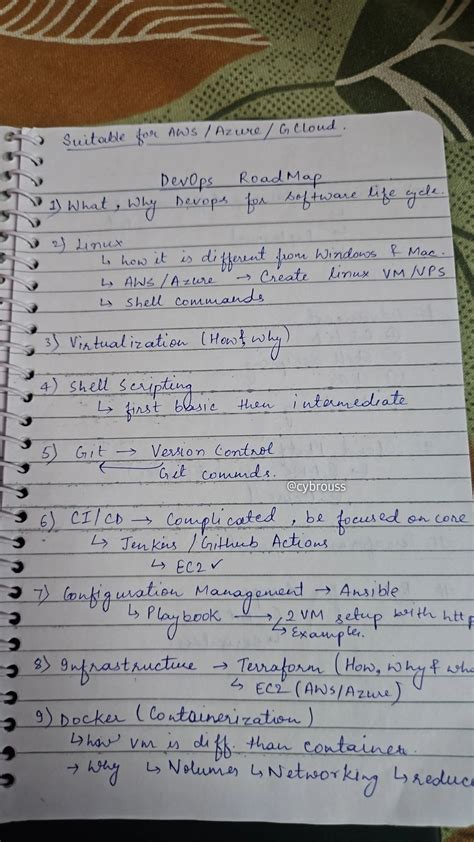 Suitable for AWS / Azure / GCloud.
DevOps RoadMap
1) What, Why Devops for software life cycle.
2) Linux
↳ how it is different from Windows & Mac.
↳ AWS / Azure → Create linux VM/VPS
↳ Shell commands
3) Virtualization (How & why)
4) Shell Scripting
↳ first basic then intermediate
5) Git → Version Control
Git commds.
@cybrouss
6) CI/CD → Complicated, be focused on core
↳ Jenkins / Github Actions
↳ EC2 ✓
7) Configuration Management → Ansible
↳ Playbook → 2 VM setup with http
↳ Example.
8) Infrastructure → Terraform (How, why &
↳ EC2 (AWS/Azure)
9) Docker (Containerization)
↳ how vm is diff. than container.
→ Why ↳ Volumes ↳ Networking ↳ reduce